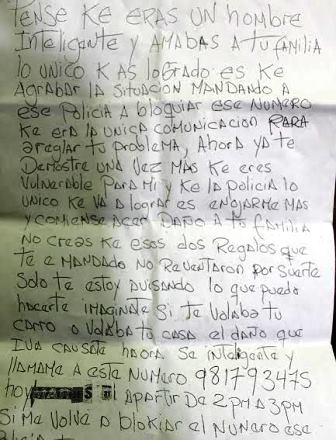 PENSE KE ERAS UN hombre
INTELIGENTE y AMABAS A tu FAMILIA
lo UNICO K AS loGRADO es KE
AGRABAR LA SITUACION MANDANDO A
ese Policia A bloquiar ese NUMERO
Ke era la UNICA COMUNICACION PARA
areglar tu problema, Ahora ya te
Demostre UNA VEZ MAS Ke eres
Vulnerable Para Mi y Ke la policia lo
UNICO Ke VA a lograr es enojarme MAS
y comiense Acer Daño A tu FAMILIA
No creas Ke esos dos Regalos que
te e MANDADO No Reventaron por suerte
Solo te estoy avisando lo que puedo
hacerte IMAGINAte Si te Volaba tu
carro o Volaba tu casa el daño que
IVA causate haora se inteligente y
llAMAME A este Numero 981793475
hoy Apartir De 2PM A 3PM
Si Me Volve a blokiar el Numero ese
Policia